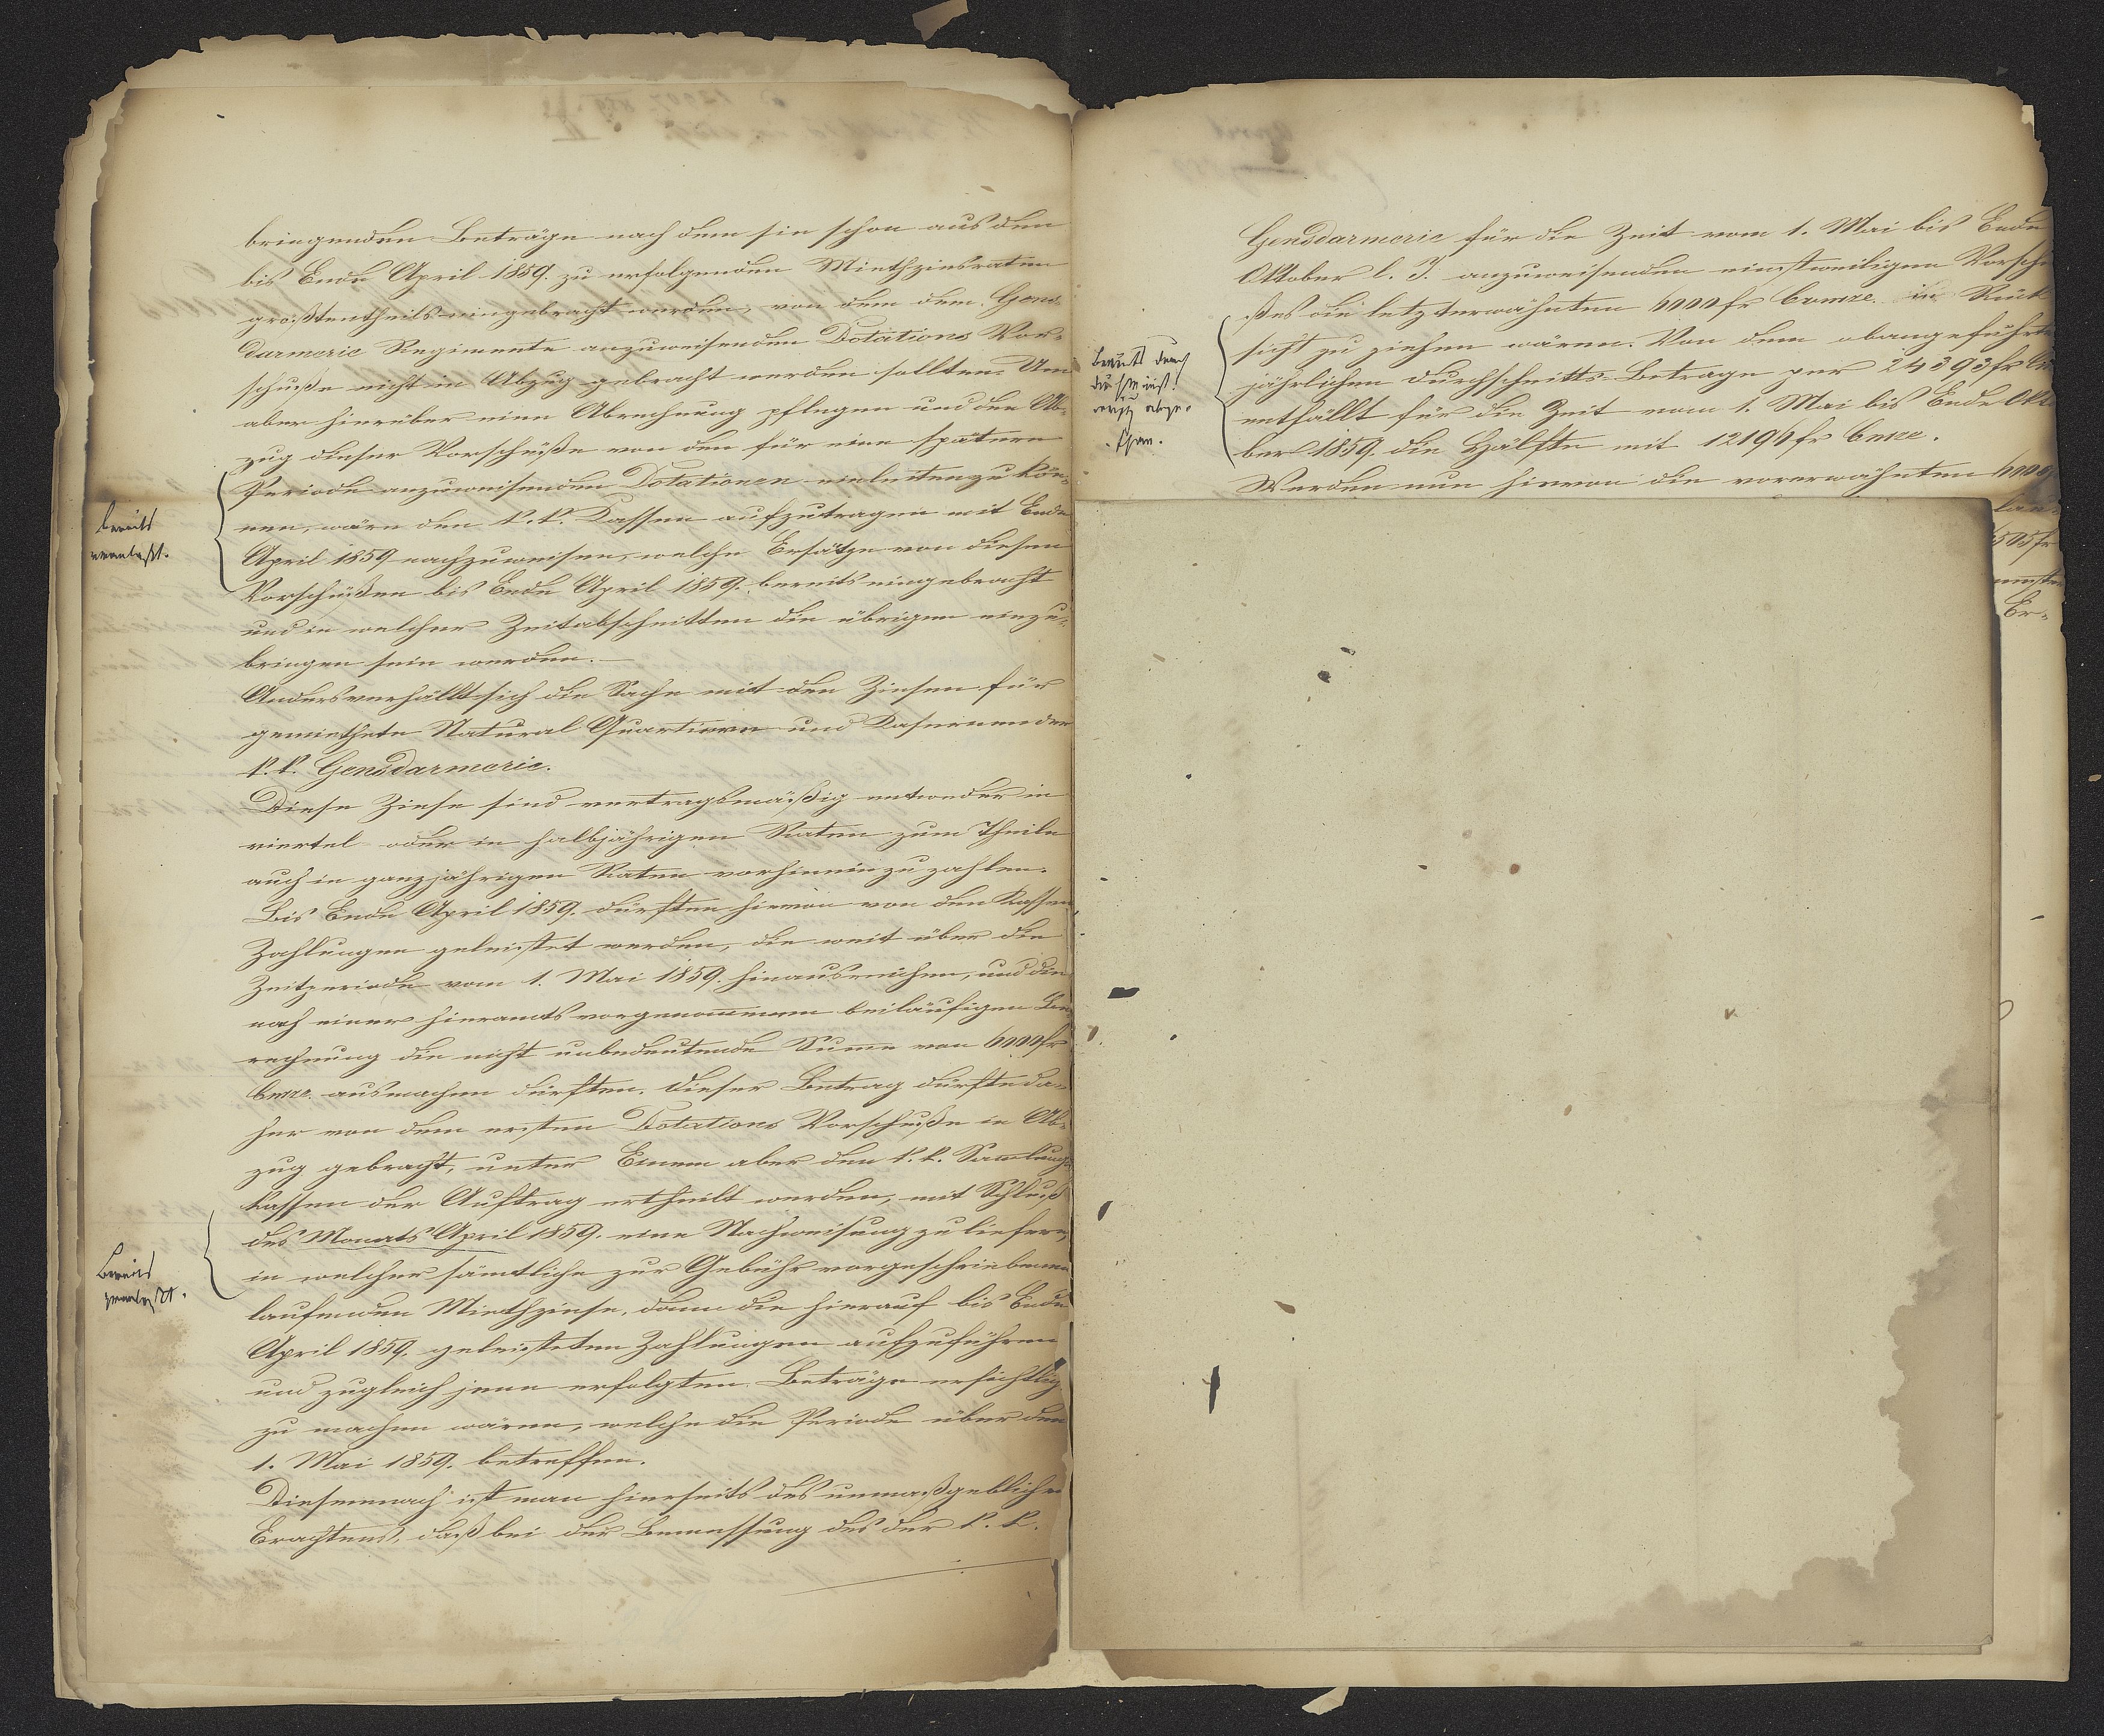 bringenden Beträge nach dem sie schon aus den
bis Ende April 1859. zu erfolgenden Miethzinsraten
größtentheils eingebracht werden, von dem dem Gens-
darmerie Regimente anzuweisenden Dotations Vor-
schuße nicht in Abzug gebracht werden sollten. Um
aber hierüber eine Abrechnung pflegen und den Ab-
zug dieser Vorschüße von den für eine spätere
Periode anzuweisenden Dotationen einleiten zu kön-
nen, wäre den k. k. Kassen aufzutragen mit Ende
April 1859 nachzuweisen, welche Ersätze von diesen
Vorschüßen bis Ende April 1859. bereits eingebracht
und in welchen Zeitabschnitten die übrigen einzu-
bringen sein werden.—
bereits
veranlaßt.
Anders verhällt sich die Sache mit den Zinsen für
gemiethete Natural Quartiere und Kasernen der
k. k. Gensdarmerie.
Diese Zinse sind vertragsmäßig entweder in
viertel oder in halbjährigen Raten zum Theile
auch in ganzjährigen Raten vorhinein zu zahlen.
Bis Ende April 1859. dürften hievon von den Kassen
Zahlungen geleistet werden, die weit über die
Zeitperiode vom 1. Mai 1859. hinausreichen, und die
nach einer hieramts vorgenommenen beiläufigen Be-
rechnung die nicht unbedeutende Summe von 6000 fr
Cmze. ausmachen dürften. Dieser Betrag dürfte da-
her von dem ersten Dotations Vorschuße in Ab-
zug gebracht, unter Einem aber den k. k. Sammlungs
Kassen der Auftrag ertheilt werden, mit Schluß
des Monats April 1859. eine Nachweisung zu liefern,
in welcher sämtliche zur Gebühr vorgeschriebenen
laufenden Miethzinse, dann die hierauf bis Ende
April 1859. geleisteten Zahlungen aufzuführen
und zugleich jene erfolgten Beträge ersichtlich
zu machen wären, welche die Periode über den
1. Mai 1859. betreffen.
Bereits
veranlaßt.
Diesemnach ist man hierseits des unmaßgeblichen
Erachtens, daß bei der Bemessung des der k. k.
Gensdarmerie für die Zeit vom 1. Mai bis Ende
Oktober l. J. anzuweisenden einstweiligen Vorschu
ßes die letzterwähnten 6000 fr Conmze. in Rück
sicht zu ziehen wären. Von dem obangeführten
jährlichen Durchschnitts-Betrage per 24393 fr
entfällt für die Zeit vom 1. Mai bis Ende Okto
ber 1859. die Hälfte mit 12196 fr Cmze.
Werden nun hievon die vorerwähnten 6000
Bereits durch
505 fr
Er-